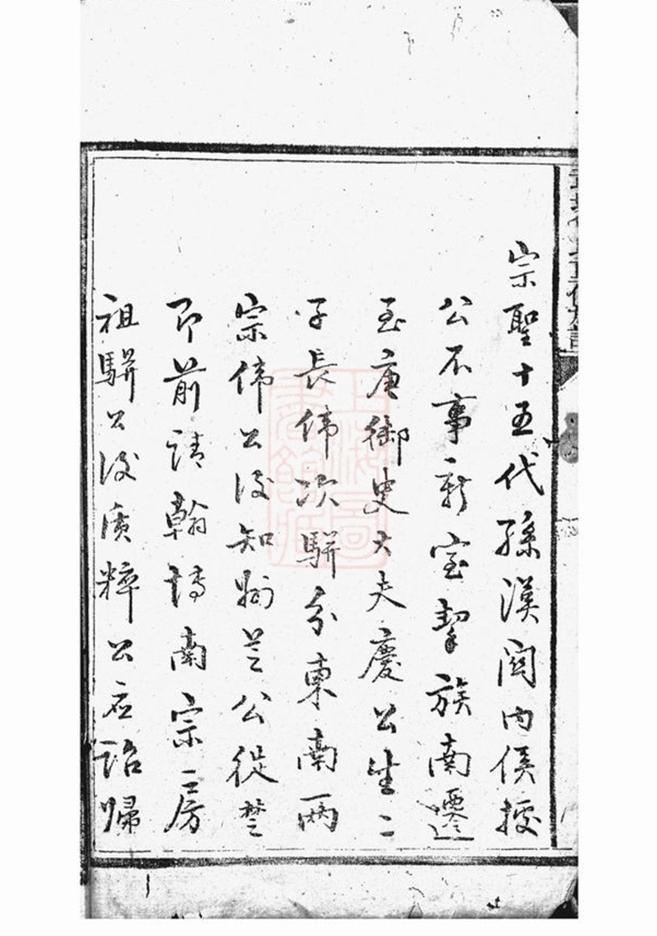 宗聖十五代孫漢關内侯據
公不事新室挈族南遷
至唐御史大夫慶公生二
子長偉次駢分東南兩
宗偉公後知州公從楚
即前請翰博南宗三房
祖駢公後質粹公应詔歸